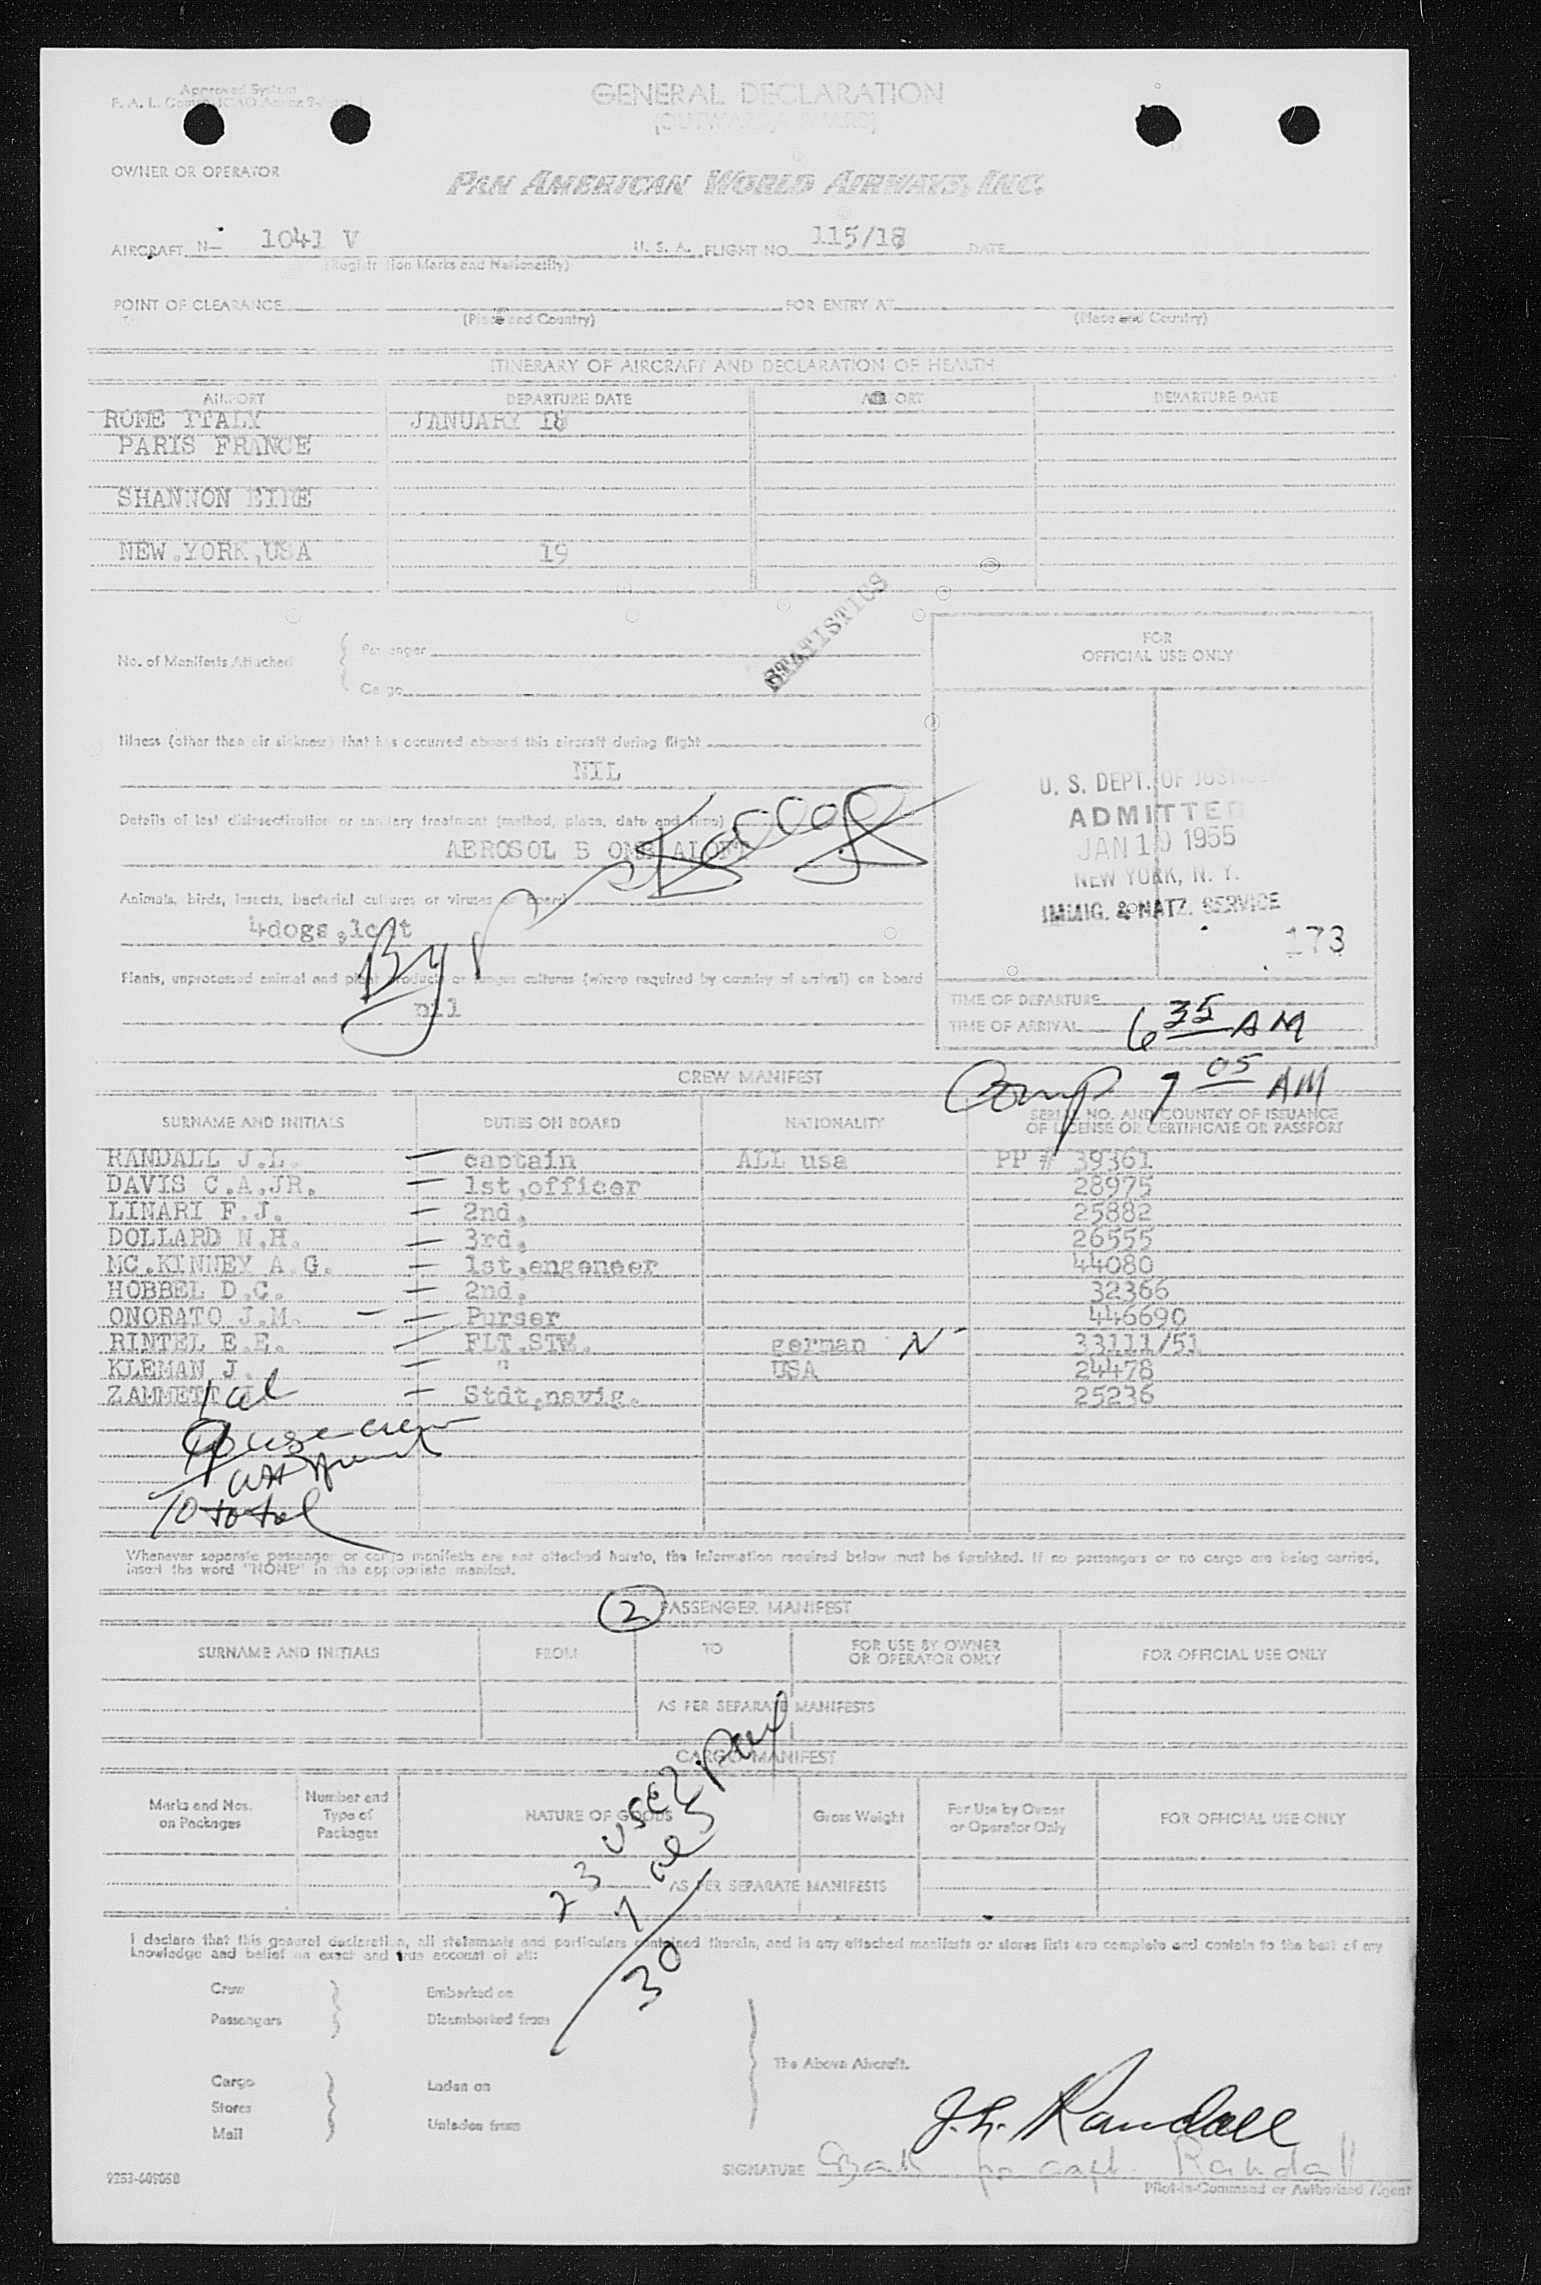 Approved System
F. A. L. Com. ICAO Annex 9
GENERAL DECLARATION
(OUTWARD/INWARD)
OWNER OR OPERATOR
PAN AMERICAN WORLD AIRWAYS, INC.
AIRCRAFT N- 1041 V U. S. A. FLIGHT NO. 115/18 DATE
(Registration Marks and Nationality)
POINT OF CLEARANCE FOR ENTRY AT
(Place and Country) (Place and Country)
ITINERARY OF AIRCRAFT AND DECLARATION OF HEALTH
AIRPORT DEPARTURE DATE AIRPORT DEPARTURE DATE
ROME ITALY JANUARY 18
PARIS FRANCE
SHANNON EIRE
NEW.YORK,USA 19
STATISTICS
No. of Manifests Attached { Passenger
Cargo
FOR
OFFICIAL USE ONLY
Illness (other than air sickness) that has occurred aboard this aircraft during flight
NIL
Details of last disinsectization or sanitary treatment (method, place, date and time)
AEROSOL B OMB ALOFT
Animals, birds, insects, bacterial cultures or viruses on board
4dogs,1cat
By
Plants, unprocessed animal and plant products or fungus cultures (where required by country of arrival) on board
nil
U. S. DEPT. OF JUSTICE
ADMITTED
JAN 10 1955
NEW YORK, N. Y.
IMMIG. & NATZ. SERVICE
173
TIME OF DEPARTURE
TIME OF ARRIVAL 6 35 AM
Comp 7 05 AM
CREW MANIFEST
SURNAME AND INITIALS DUTIES ON BOARD NATIONALITY SERIAL NO. AND COUNTRY OF ISSUANCE
OF LICENSE OR CERTIFICATE OR PASSPORT
RANDALL J.L. — captain ALL usa PP # 39361
DAVIS C.A.JR. — 1st,officer 28975
LINARI F.J. — 2nd, 25882
DOLLARD N.H. — 3rd, 26555
MC.KINNEY A.G. — 1st.engeneer 44080
HOBBEL D.C. — 2nd, 32366
ONORATO J.M. — — Purser 446690
RINTEL E.E. — FLT.STW. german N 33111/51
KLEMAN J. — " USA 24478
ZAMMETT J. — Stdt,navig. 25236
1 al
9 usc crew
10 total
Whenever separate passenger or cargo manifests are not attached hereto, the information required below must be furnished. If no passengers or no cargo are being carried,
insert the word "NONE" in the appropriate manifest.
2 PASSENGER MANIFEST
SURNAME AND INITIALS FROM TO FOR USE BY OWNER
OR OPERATOR ONLY FOR OFFICIAL USE ONLY
AS PER SEPARATE MANIFESTS
CARGO MANIFEST
Marks and Nos.
on Packages Number and
Type of
Packages NATURE OF GOODS Gross Weight For Use by Owner
or Operator Only FOR OFFICIAL USE ONLY
AS PER SEPARATE MANIFESTS
23 usc
7 al
30
I declare that this general declaration, all statements and particulars contained therein, and in any attached manifests or stores lists are complete and contain to the best of my
knowledge and belief an exact and true account of all:
Crew Embarked on
Passengers Disembarked from
The Above Aircraft.
Cargo Laden on
Stores
Mail Unladen from
J.L. Randall
SIGNATURE for capt. Randall
9253-609050 Pilot-in-Command or Authorized Agent